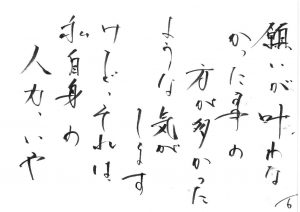 願いが叶わな
かった事の
方が多かった
ような気が
します
けれど、それは、
私自身の
人力、いや
6